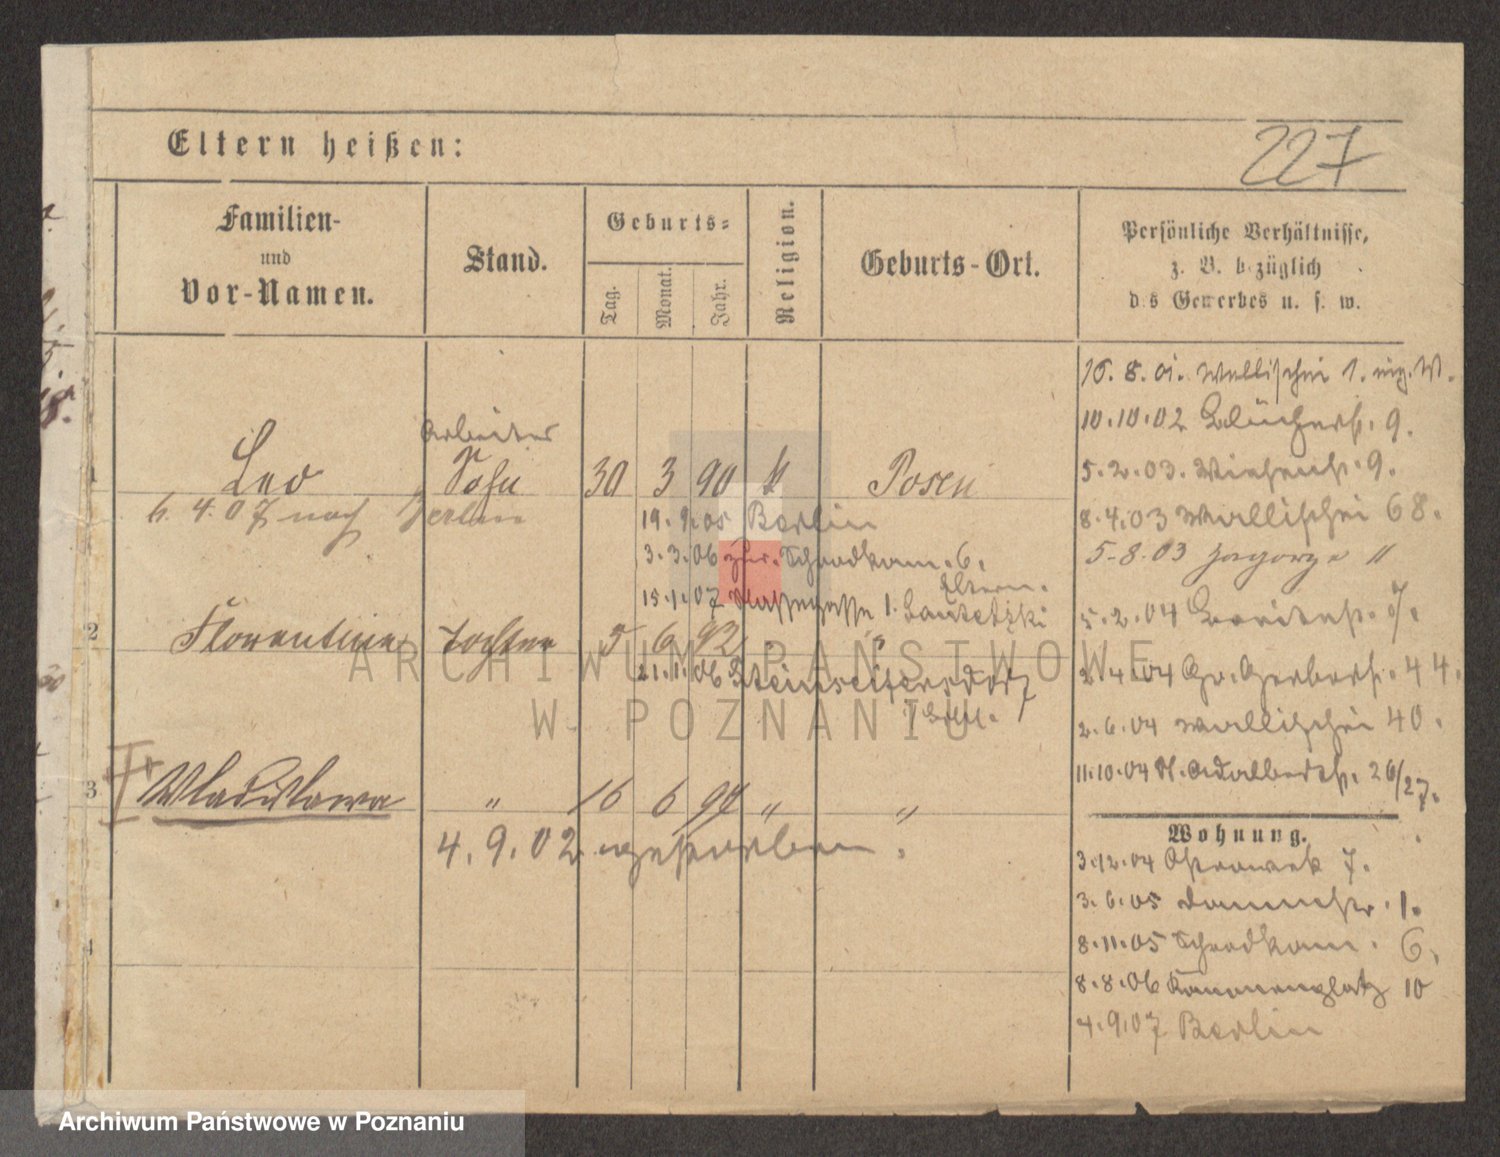 227
Eltern heißen:
Familien-
und
Vor-Namen.
Stand.
Geburts-
Tag.
Monat.
Jahr.
Religion.
Geburts-Ort.
Persönliche Verhältnisse,
z. B. bezüglich
des Gewerbes u. s. w.
Arbeiter
1 Leo Sohn 30 3 90 k Posen
6. 4. 07 nach Berlin
19. 9. 05 Berlin
3. 3. 06 zur. Schrodkam. 6.
Eltern.
15. 1. 07 1.
2 Florentine Tochter 5 6 92 "
21. 1. 06 Steinseifersdorf
3 Wladislawa " 16 6 94 " "
4. 9. 02 gestorben.
4
8. 01. Wallischei 1.
10. 10. 02 Blücherst. 9.
5. 2. 03. Wiesenst. 9.
8. 4. 03 Wallischei 68.
5. 8. 03 Zagorze 11
5. 2. 04 Breitest. 7.
2. 4. 04 Gr. Gerberst. 44.
2. 6. 04 Wallischei 40.
11. 10. 04 St. Adalbertst. 26/27.
Wohnung.
3. 12. 04 Ostrowek 7.
3. 6. 05 Dammstr. 1.
8. 11. 05 Schrodkam. 6.
8. 8. 06 Kanonenplatz 10
4. 9. 07 Berlin
ARCHIWUM PAŃSTWOWE
W POZNANIU
Archiwum Państwowe w Poznaniu